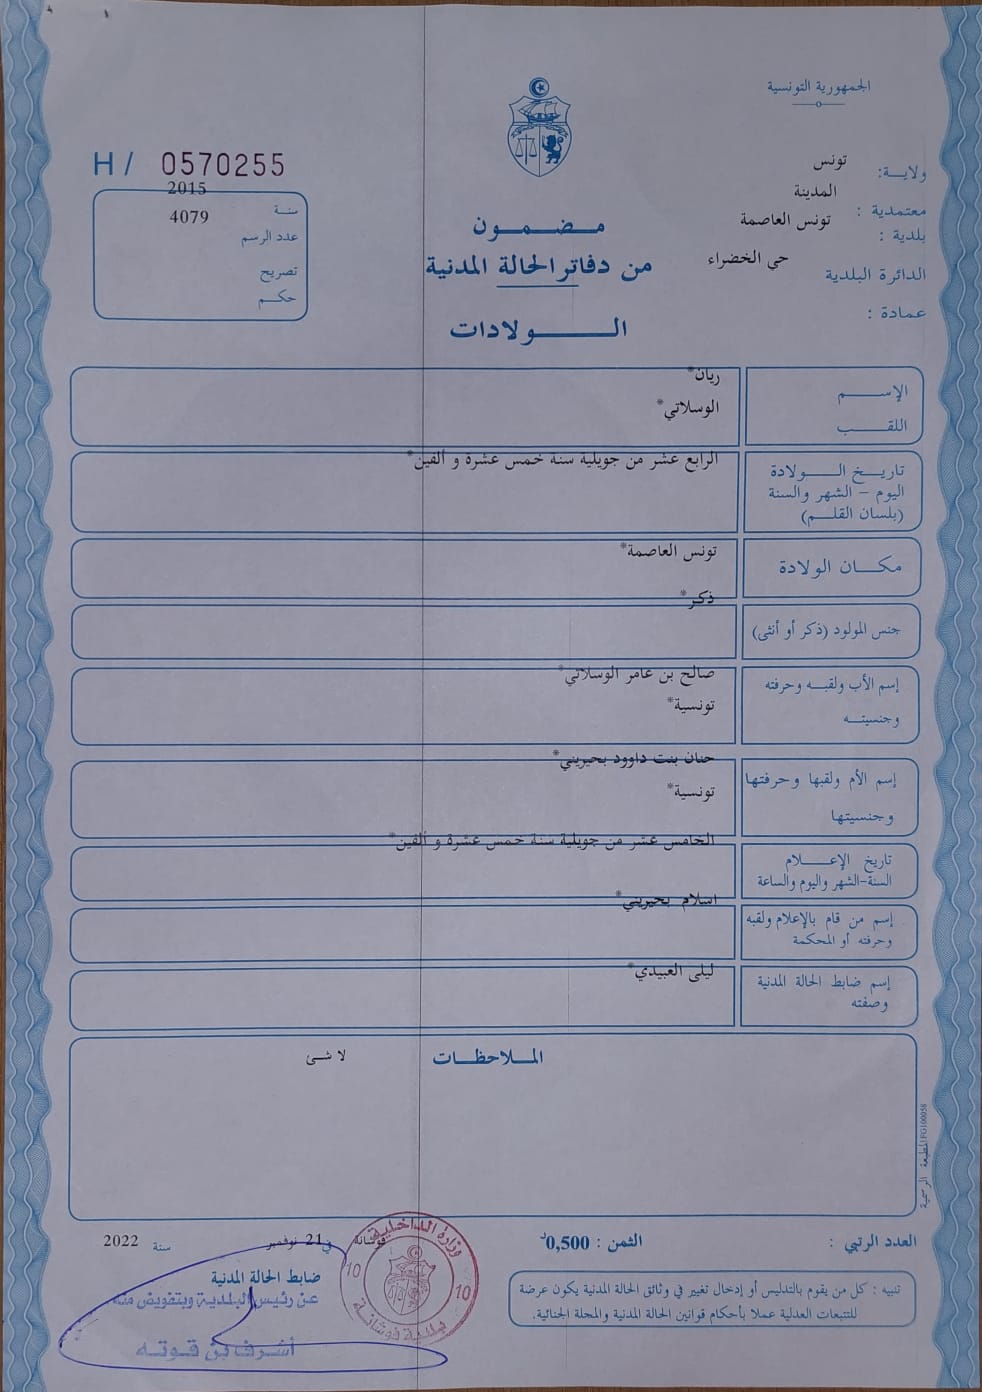 الجمهورية التونسية
ولاية: تونس
معتمدية : المدينة
بلدية : تونس العاصمة
الدائرة البلدية حي الخضراء
عمادة :
H/ 0570255
سنة 2015
عدد الرسم 4079
تصريح
حكم
مضمون
من دفاتر الحالة المدنية
الولادات
الإسم ريان*
اللقب الوسلاتي*
تاريخ الولادة
اليوم - الشهر والسنة
(بلسان القلم)
الرابع عشر من جويلية سنة خمس عشرة و ألفين*
مكان الولادة تونس العاصمة*
جنس المولود (ذكر أو أنثى) ذكر*
إسم الأب ولقبه وحرفته
وجنسيته
صالح بن عامر الوسلاتي*
تونسية*
إسم الأم ولقبها وحرفتها
وجنسيتها
حنان بنت داوود بحيريني*
تونسية*
تاريخ الإعلام
السنة-الشهر واليوم والساعة
الخامس عشر من جويلية سنة خمس عشرة و ألفين*
إسم من قام بالإعلام ولقبه
وحرفته أو المحكمة
اسلام بحيريني*
إسم ضابط الحالة المدنية
وصفته
ليلى العبيدي*
الملاحظات
لا شى
المطبعة الرسمية IFG100058
العدد الرتبي :
الثمن : 0,500د
فوشانة في 21 نوفمبر سنة 2022
تنبيه : كل من يقوم بالتدليس أو إدخال تغيير في وثائق الحالة المدنية يكون عرضة
للتتبعات العدلية عملا بأحكام قوانين الحالة المدنية والمجلة الجنائية.
ضابط الحالة المدنية
عن رئيس البلدية وبتفويض منه
أشرف بن قوته
وزارة الداخلية
10 10
بلدية فوشانة